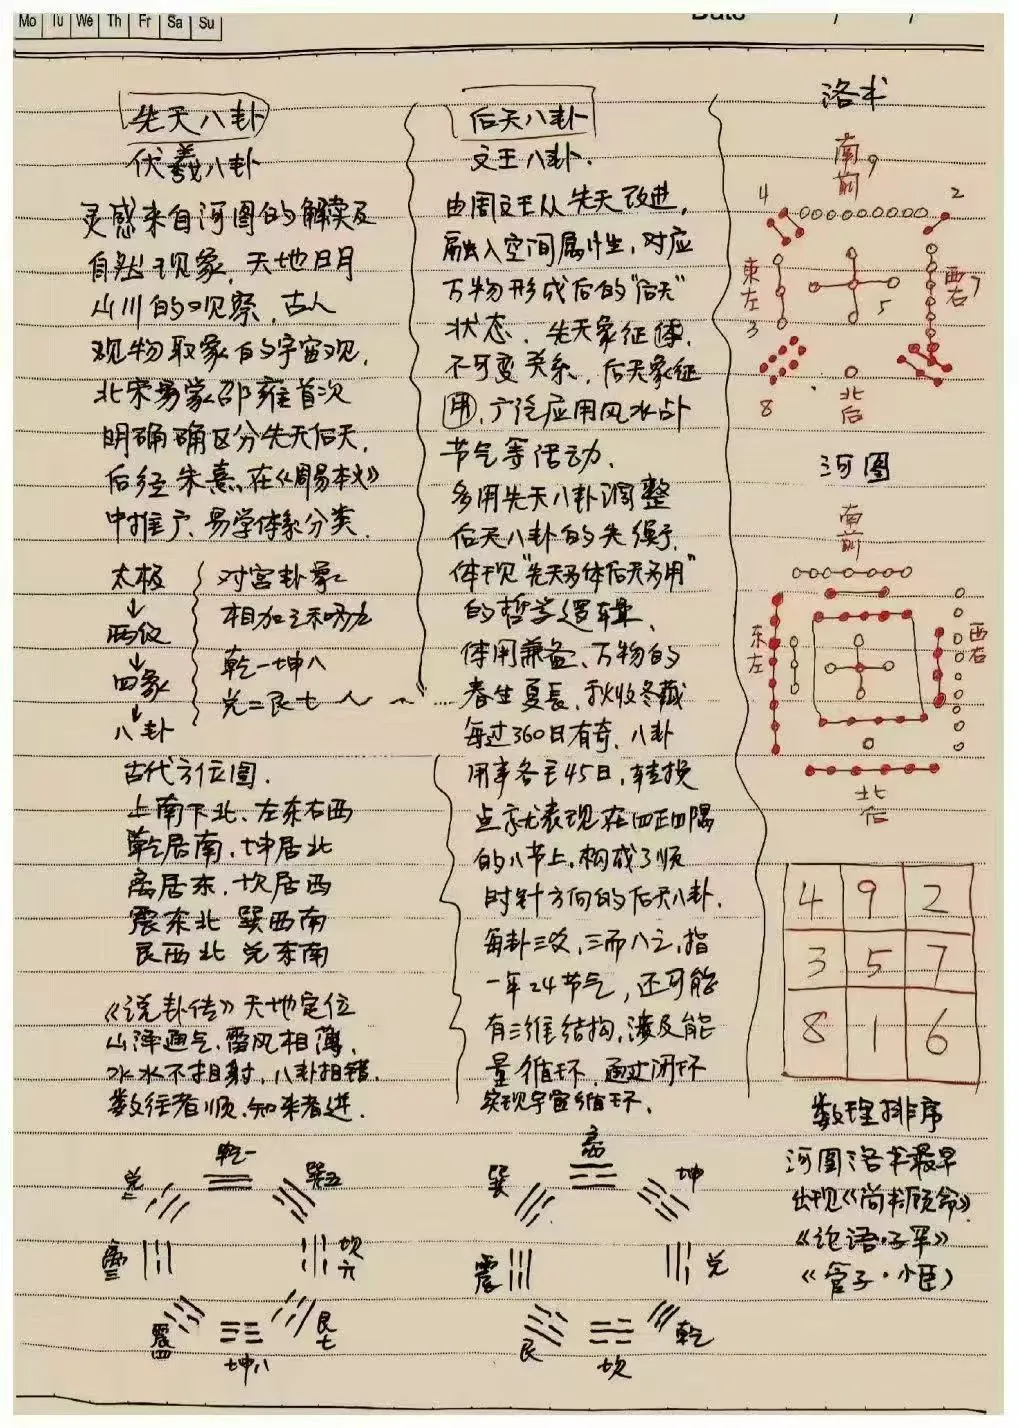 Mo Tu We Th Fr Sa Su
Date / /
先天八卦
伏羲八卦
灵感来自河图的解读及
自然现象，天地日月
山川的观察，古人
观物取象的宇宙观，
北宋易学家邵雍首次
明确确区分先天后天，
后经朱熹，在《周易本义》
中推广、易学体系分类
太极
↓
两仪
↓
四象
↓
八卦
对宫卦象
相加之和为九
乾一坤八
兑二艮七
古代方位图．
上南下北、左东右西
乾居南，坤居北
离居东，坎居西
震东北 巽西南
艮西北 兑东南
《说卦传》天地定位
山泽通气，雷风相薄，
水火不相射，八卦相错，
数往者顺，知来者逆．
兑二
乾一
巽五
离三
坎六
震四
坤八
艮七
后天八卦
文王八卦．
由周文王从先天改进，
融入空间属性，对应
万物形成后的“后天”
状态．先天象征体，
不可变关系，后天象征
用，广泛应用风水占
节气等活动．
多用先天八卦调整
后天八卦的失衡，
体现“先天为体后天为用”
的哲学逻辑、
体用兼备、万物的
春生夏長，秋收冬藏
每过360日有奇，八卦
用事各主45日，转换
点就表现在四正四隅
的八节上，构成了顺
时针方向的后天八卦．
每卦三爻，三而八之，指
一年24节气，还可能
有三维结构，涉及能
量循环，通过闭环
实现宇宙循环．
巽
离
坤
震
兑
艮
坎
乾
洛书
南
前
9
4
2
東
左
3
5
西
右
7
8
北
后
河图
南
前
东
左
西
右
北
后
4 9 2
3 5 7
8 1 6
数理排序
河图洛书最早
出现《尚书顾命》
《论语·子罕》
《管子·小臣》